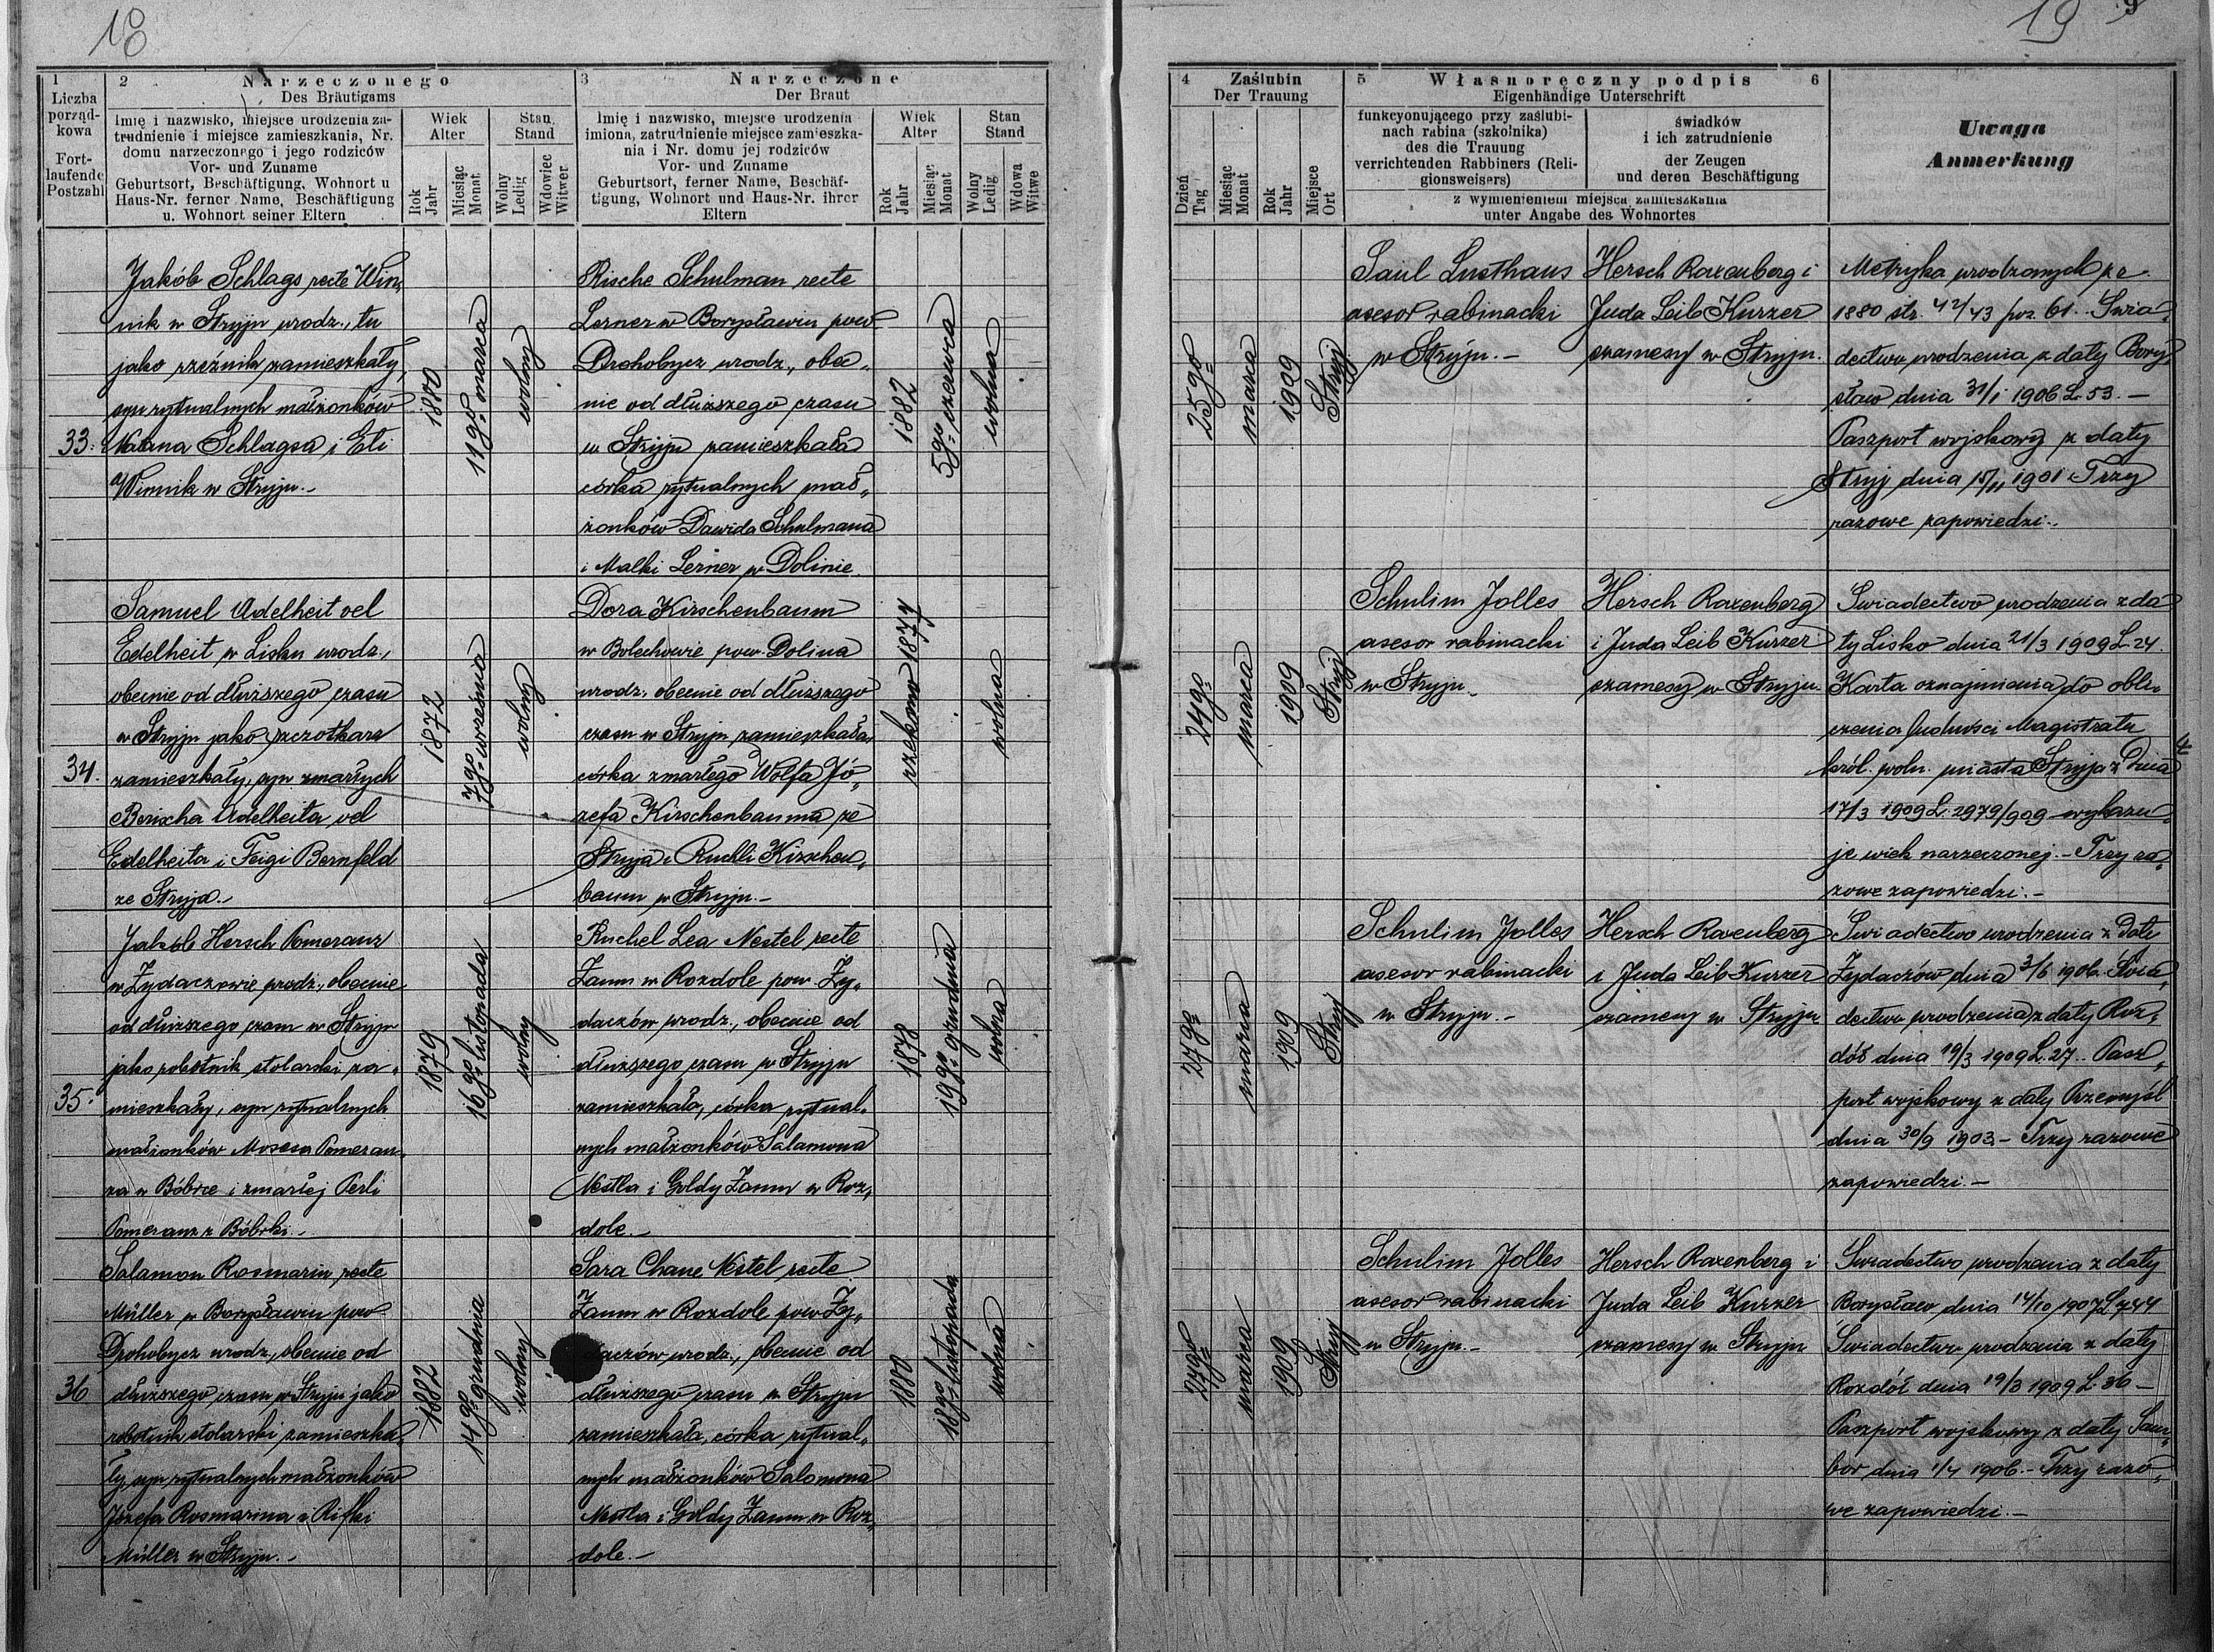 18
19
9
1
Liczba
porząd-
kowa
Fort-
laufende
Postzahl
2 Narzeczonego
Des Bräutigams
Imię i nazwisko, miejsce urodzenia za-
trudnienie i miejsce zamieszkania, Nr.
domu narzeczonego i jego rodziców
Vor- und Zuname
Geburtsort, Beschäftigung, Wohnort u
Haus-Nr. ferner Name, Beschäftigung
u. Wohnort seiner Eltern
Wiek
Alter
Rok
Jahr
Miesiąc
Monat
Stan
Stand
Wolny
Ledig
Wdowiec
Witwer
3 Narzeczone
Der Braut
Imię i nazwisko, miejsce urodzenia
imiona, zatrudnienie miejsce zamieszka-
nia i Nr. domu jej rodziców
Vor- und Zuname
Geburtsort, ferner Name, Beschäf-
tigung, Wohnort und Haus-Nr. ihrer
Eltern
Wiek
Alter
Rok
Jahr
Miesiąc
Monat
Stan
Stand
Wolny
Ledig
Wdowa
Witwe
4 Zaślubin
Der Trauung
Dzień
Tag
Miesiąc
Monat
Rok
Jahr
Miejsce
Ort
5 Własnoręczny podpis 6
Eigenhändige Unterschrift
funkcyonującego przy zaślubi-
nach rabina (szkolnika)
des die Trauung
verrichtenden Rabbiners (Reli-
gionsweisers)
świadków
i ich zatrudnienie
der Zeugen
und deren Beschäftigung
z wymienieniem miejsca zamieszkania
unter Angabe des Wohnortes
Uwaga
Anmerkung
33.
Jakób Schlags recte Win,
nik w Stryju urodz., tu
jako rzeźnik zamieszkały,
syn rytualnych małżonków
Natana Schlagsa i Eti
Winnik w Stryju.-
1880
11go marca
wolny
Rische Schulman recte
Lerner w Borysławiu pow.
Drohobycz urodz., obe,
nie od dłuższego czasu
w Stryju zamieszkała
córka rytualnych mał,
żonków Dawida Schulmana
i Malki Lerner w Dolinie.
1882
5go czerwca
wolna
25go
marca
1909
Stryj
Saul Lusthaus
asesor rabinacki
w Stryju.-
Hersch Roxenberg i
Juda Leib Kurzer
szamesy w Stryju.
Metryka urodzonych pe
1880 str. 42/43 poz. 61. Swia,
dectwo urodzenia z daty Bory,
sław dnia 31/1 1906 L. 53.-
Paszport wojskowy z daty
Stryj dnia 15/11 1901 Trzy
razowe zapowiedzi.-
34.
Samuel Adelheit vel
Edelheit w Lisku urodz.,
obecnie od dłuższego czasu
w Stryju jako szczotkarz
zamieszkały, syn zmarłych
Berischa Adelheita vel
Edelheita i Feigi Bernfeld
ze Stryja.-
1872
7go września
wolny
Dora Kirschenbaum
w Bolechowie pow. Dolina
urodz. obecnie od dłuższego
czasu w Stryju zamieszkała,
córka zmarłego Wolfa Jó,
zefa Kirschenbauma ze
Stryja i Ruchli Kirschen,
baum w Stryju.-
rzekomo 1877
wolna
24go
marca
1909
Stryj
Schulim Jolles
asesor rabinacki
w Stryju.-
Hersch Roxenberg
i Juda Leib Kurzer
szamesy w Stryju.
Swiadectwo urodzenia z da
ty Lisko dnia 21/3 1909 L. 24.
Karta oznajmienia do obli,
czenia ludności Magistratu
król. woln. miasta Stryja z dnia
17/3 1909 L. 2979/909 wykazu,
je wiek narzeczonej.- Trzy ra,
zowe zapowiedzi.-
35.
Jakób Hersch Pomeranz
w Żydaczowie urodz., obecnie
od dłuższego czasu w Stryju
jako robotnik stolarski za,
mieszkały, syn rytualnych
małżonków Mosesa Pomeran,
za w Bóbrce i zmarłej Perli
Pomeranz z Bóbrki.-
1879
16go listopada
wolny
Ruchel Lea Nestel recte
Zaun w Rozdole pow. Ży,
daczów urodz., obecnie od
dłuższego czasu w Stryju
zamieszkała, córka rytual,
nych małżonków Salamona
Nestla i Goldy Zaun w Roz,
dole.-
1878
19go grudnia
wolna
27go
marca
1909
Stryj
Schulim Jolles
asesor rabinacki
w Stryju.-
Hersch Roxenberg
i Juda Leib Kurzer
szamesy w Stryju
Swiadectwo urodzenia z daty
Żydaczów dnia 3/6 1906. Świa,
dectwo urodzenia z daty Roz,
dół dnia 19/3 1909 L. 27.. Pasz,
port wojskowy z daty Przemyśl
dnia 30/9 1903.- Trzy razowe
zapowiedzi.-
36
Salamon Rosmarin recte
Müller w Borysławiu pow.
Drohobycz urodz., obecnie od
dłuższego czasu w Stryju jako
robotnik stolarski zamieszka,
ły, syn rytualnych małżonków
Józefa Rosmarina i Rifki
Müller w Stryju.-
1882
14go grudnia
wolny
Sara Chane Nestel recte
Zaun w Rozdole pow. Ży,
daczów urodz., obecnie od
dłuższego czasu w Stryju
zamieszkała, córka rytual,
nych małżonków Salomona
Nestla i Goldy Zaun w Roz,
dole.-
1880
18go listopada
wolna
27go
marca
1909
Stryj
Schulim Jolles
asesor rabinacki
w Stryju.-
Hersch Roxenberg i
Juda Leib Kurzer
szamesy w Stryju
Swiadectwo urodzenia z daty
Borysław dnia 14/10 1907 L. 744
Swiadectwo urodzenia z daty
Rozdół dnia 19/3 1909 L. 36-
Paszport wojskowy z daty Sam,
bor dnia 1/4 1906.- Trzy razo,
we zapowiedzi.-